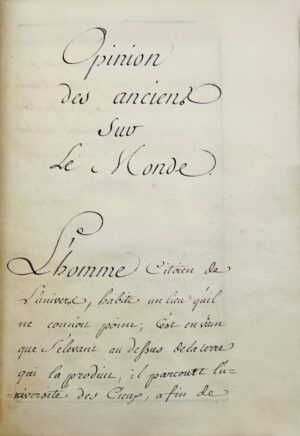 Opinion
des anciens
sur
Le Monde.
L'homme Citoïen de
L'univers, habite un lieu qu'il
ne connoit point; C'est en vain
que S'elevant au dessus de la terre
qui la produit, il parcourt l'u=
niversité des Cieux, afin de